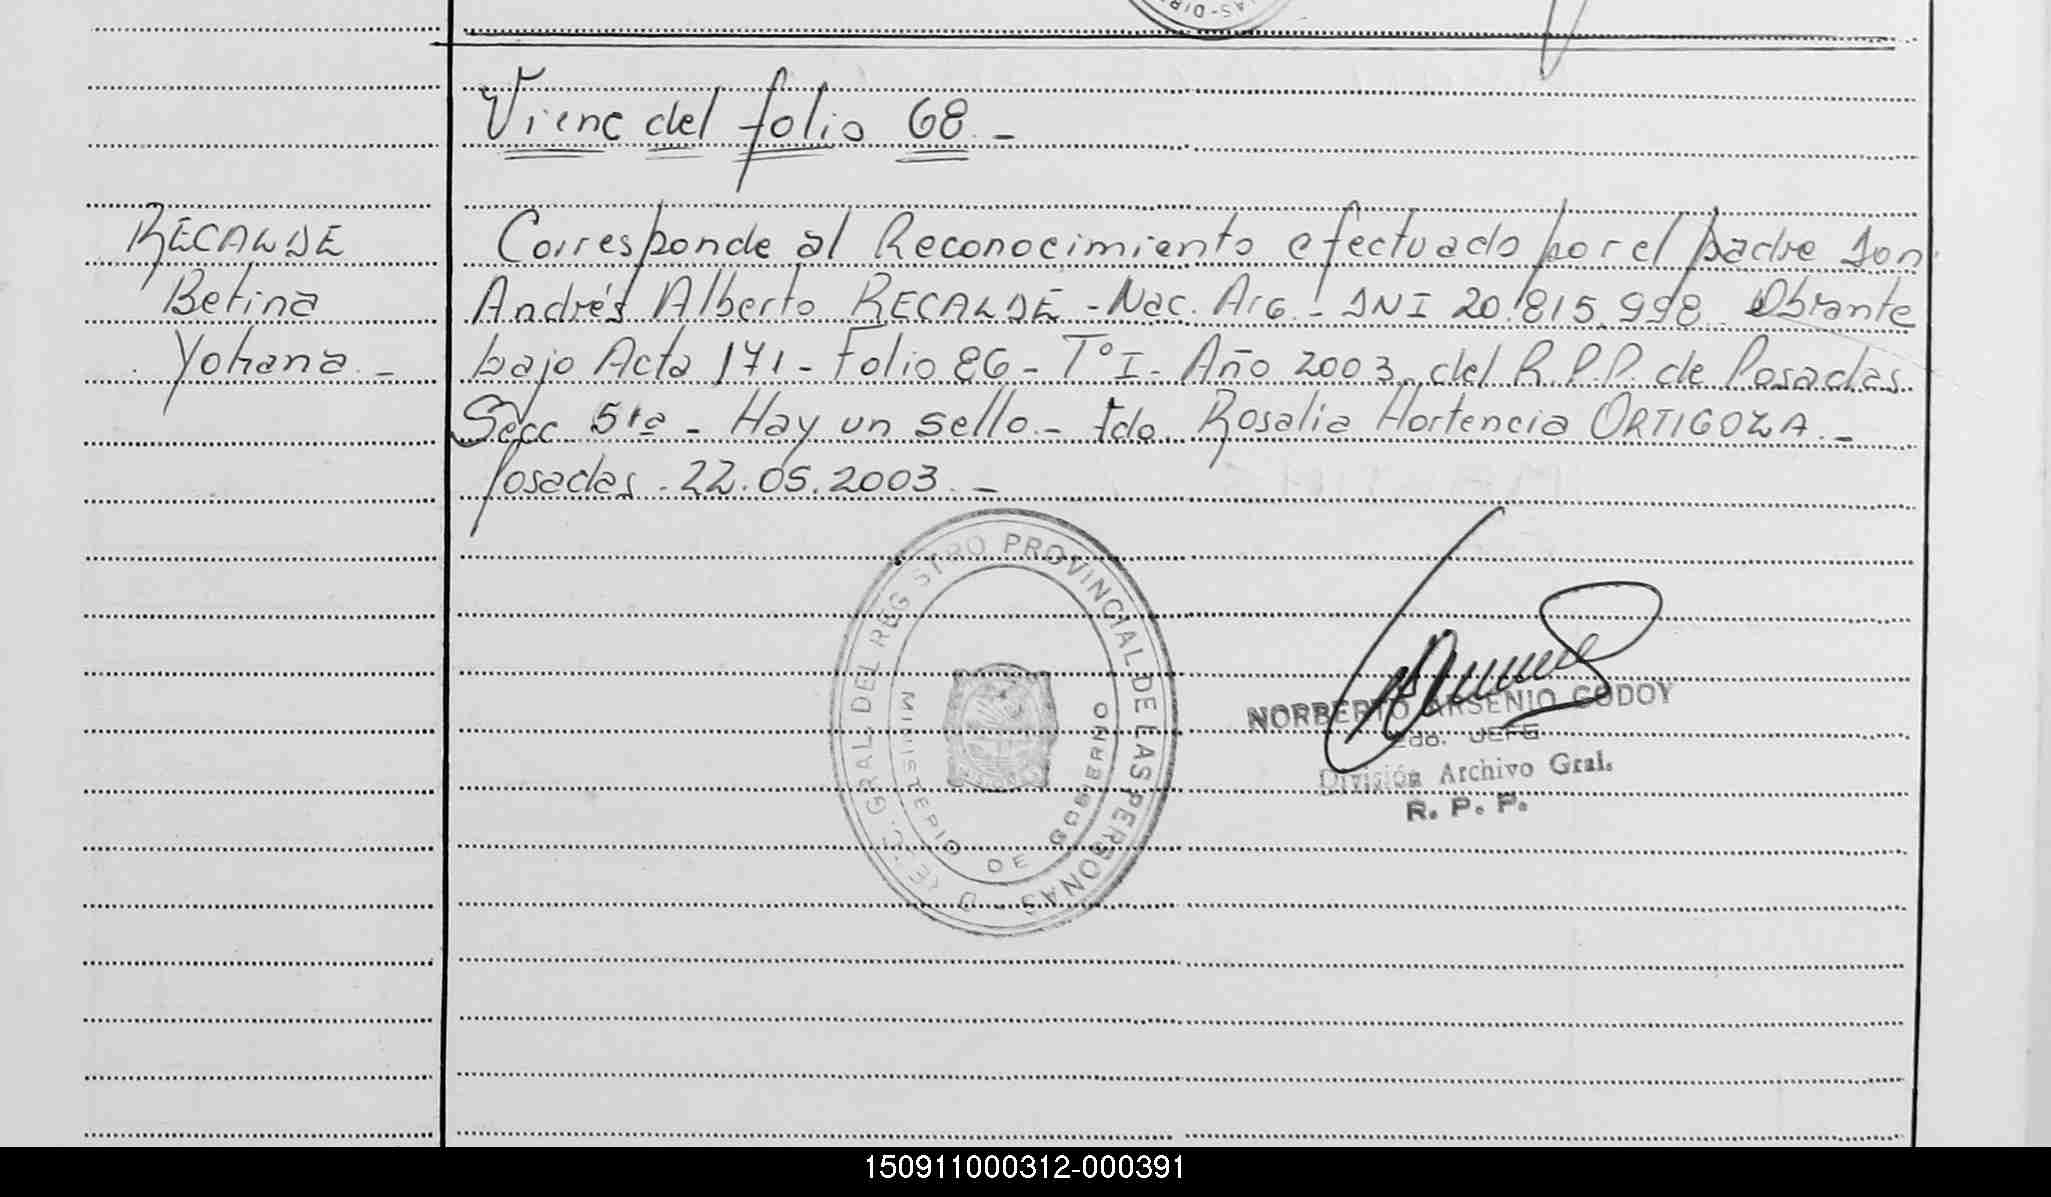 Viene del folio 68.-
RECALDE
Betina
Yohana.-
Corresponde al Reconocimiento efectuado por el padre Don
Andrés Alberto RECALDE - Nac. Arg. - DNI 20.815.998. Obrante
bajo Acta 171 - Folio 86 - T° I - Año 2003. del R.P.P. de Posadas
Secc 5ta - Hay un sello.- Fdo. Rosalia Hortencia ORTIGOZA.-
Posadas. 22.05.2003.-
GRAL. DEL REGISTRO PROVINCIAL DE LAS PERSONAS -
MINISTERIO DE GOBIERNO
NORBERTO ARSENIO GODOY
2do. JEFE
División Archivo Gral.
R. P. P.
150911000312-000391